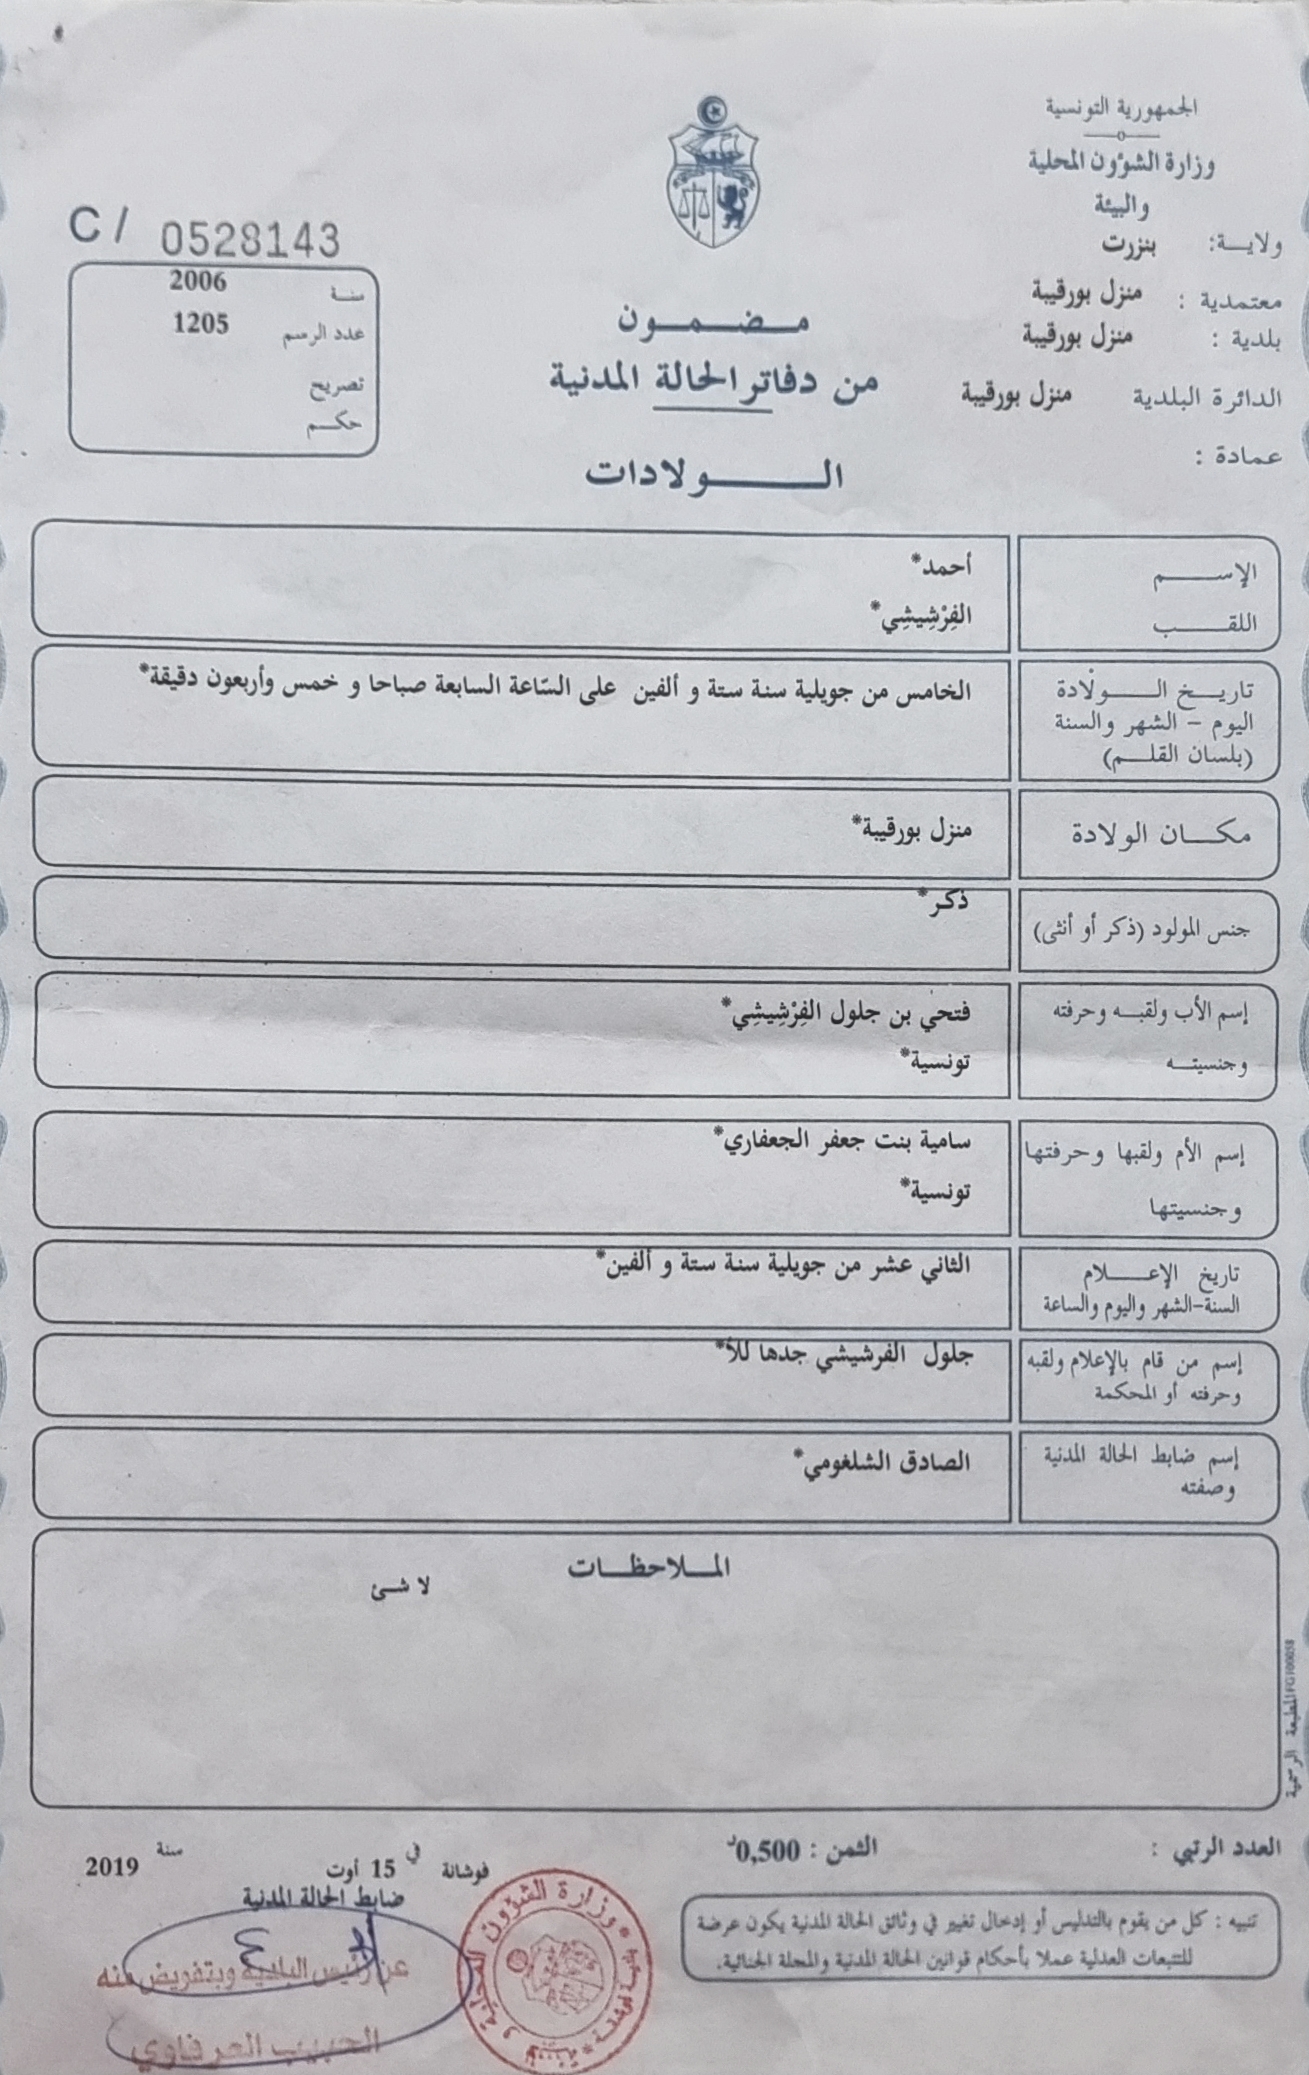 الجمهورية التونسية
وزارة الشؤون المحلية
والبيئة
ولاية: بنزرت
معتمدية : منزل بورقيبة
بلدية : منزل بورقيبة
الدائرة البلدية منزل بورقيبة
عمادة :
مضمون
من دفاتر الحالة المدنية
الولادات
C / 0528143
سنة 2006
عدد الرسم 1205
تصريح
حكم
الإسم أحمد*
اللقب الفِرْشِيشِي*
تاريخ الولادة الخامس من جويلية سنة ستة و ألفين على السّاعة السابعة صباحا و خمس وأربعون دقيقة*
اليوم - الشهر والسنة
(بلسان القلم)
مكان الولادة منزل بورقيبة*
جنس المولود (ذكر أو أنثى) ذكر*
إسم الأب ولقبه وحرفته فتحي بن جلول الفِرْشِيشِي*
وجنسيته تونسية*
إسم الأم ولقبها وحرفتها سامية بنت جعفر الجعفاري*
وجنسيتها تونسية*
تاريخ الإعلام الثاني عشر من جويلية سنة ستة و ألفين*
السنة-الشهر واليوم والساعة
إسم من قام بالإعلام ولقبه جلول الفرشيشي جدها للأ*
وحرفته أو المحكمة
إسم ضابط الحالة المدنية الصادق الشلغومي*
وصفته
الملاحظات
لا شئ
المطبعة الرسمية
العدد الرتبي :
الثمن : 0,500د
فوشانة في 15 أوت سنة 2019
ضابط الحالة المدنية
عن رئيس البلدية وبتفويض منه
الحبيب العرفاوي
وزارة الشؤون المحلية و البيئة
تنبيه : كل من يقوم بالتدليس أو إدخال تغيير في وثائق الحالة المدنية يكون عرضة
للتتبعات العدلية عملا بأحكام قوانين الحالة المدنية والمجلة الجنائية.